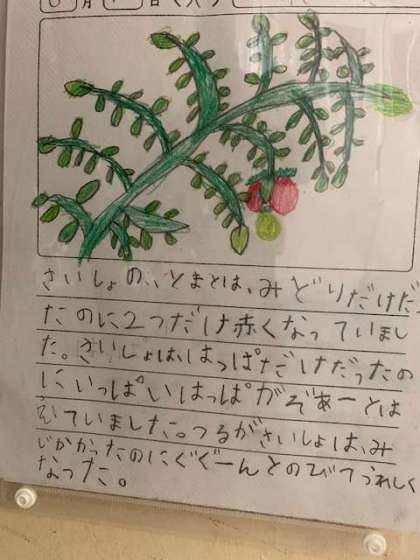 月 日
さいしょの、、とまとは、みどりだけだっ
たのに2つだけ赤くなっていまし
た。さいしょは、はっぱだけだったの
にいっぱいはっぱがぞぁーとは
えていました。つるがさいしょは、み
じかかったのにぐぐーんとのびてうれしく
なった。